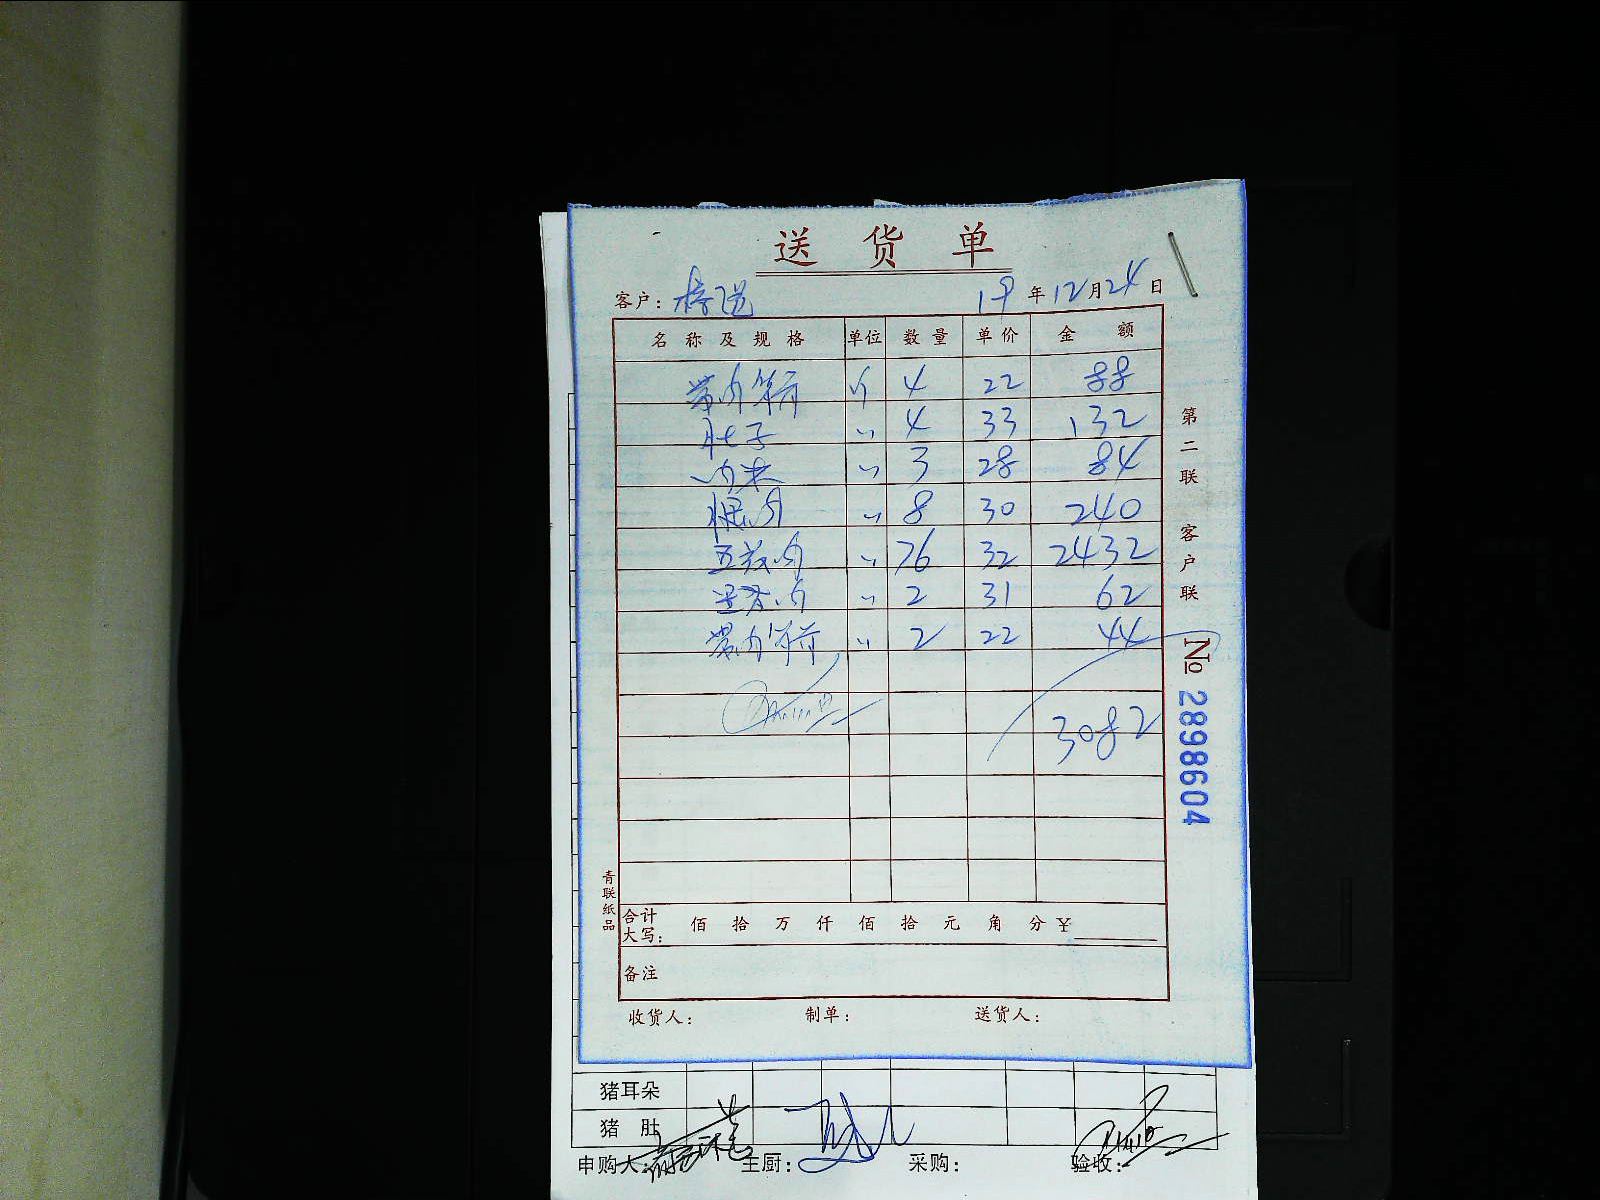 送 货 单
客户： 19 年 12 月 24 日
名 称 及 规 格 单位 数 量 单 价 金 额
带肉 斤 4 22 88
肚子 〃 4 33 132
肉 〃 3 28 84
腿肉 〃 8 30 240
五花肉 〃 76 32 2432
肉 〃 2 31 62
带肉 〃 2 22 44
3082
合计
大写： 佰 拾 万 仟 佰 拾 元 角 分 ¥
备注
收货人： 制单： 送货人：
第二联 客户联
№ 2898604
青联纸品
猪耳朵
猪 肚
申购人： 主厨： 采购： 验收：